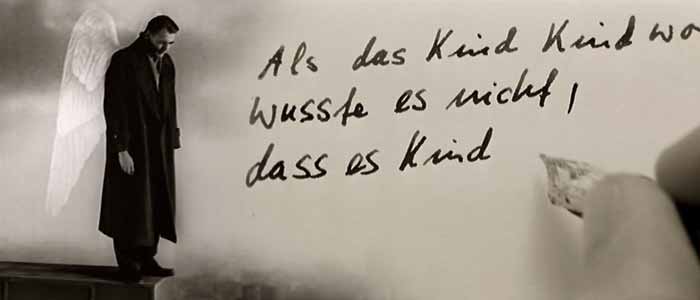 Als das Kind Kind wa
wusste es nicht,
dass es Kind